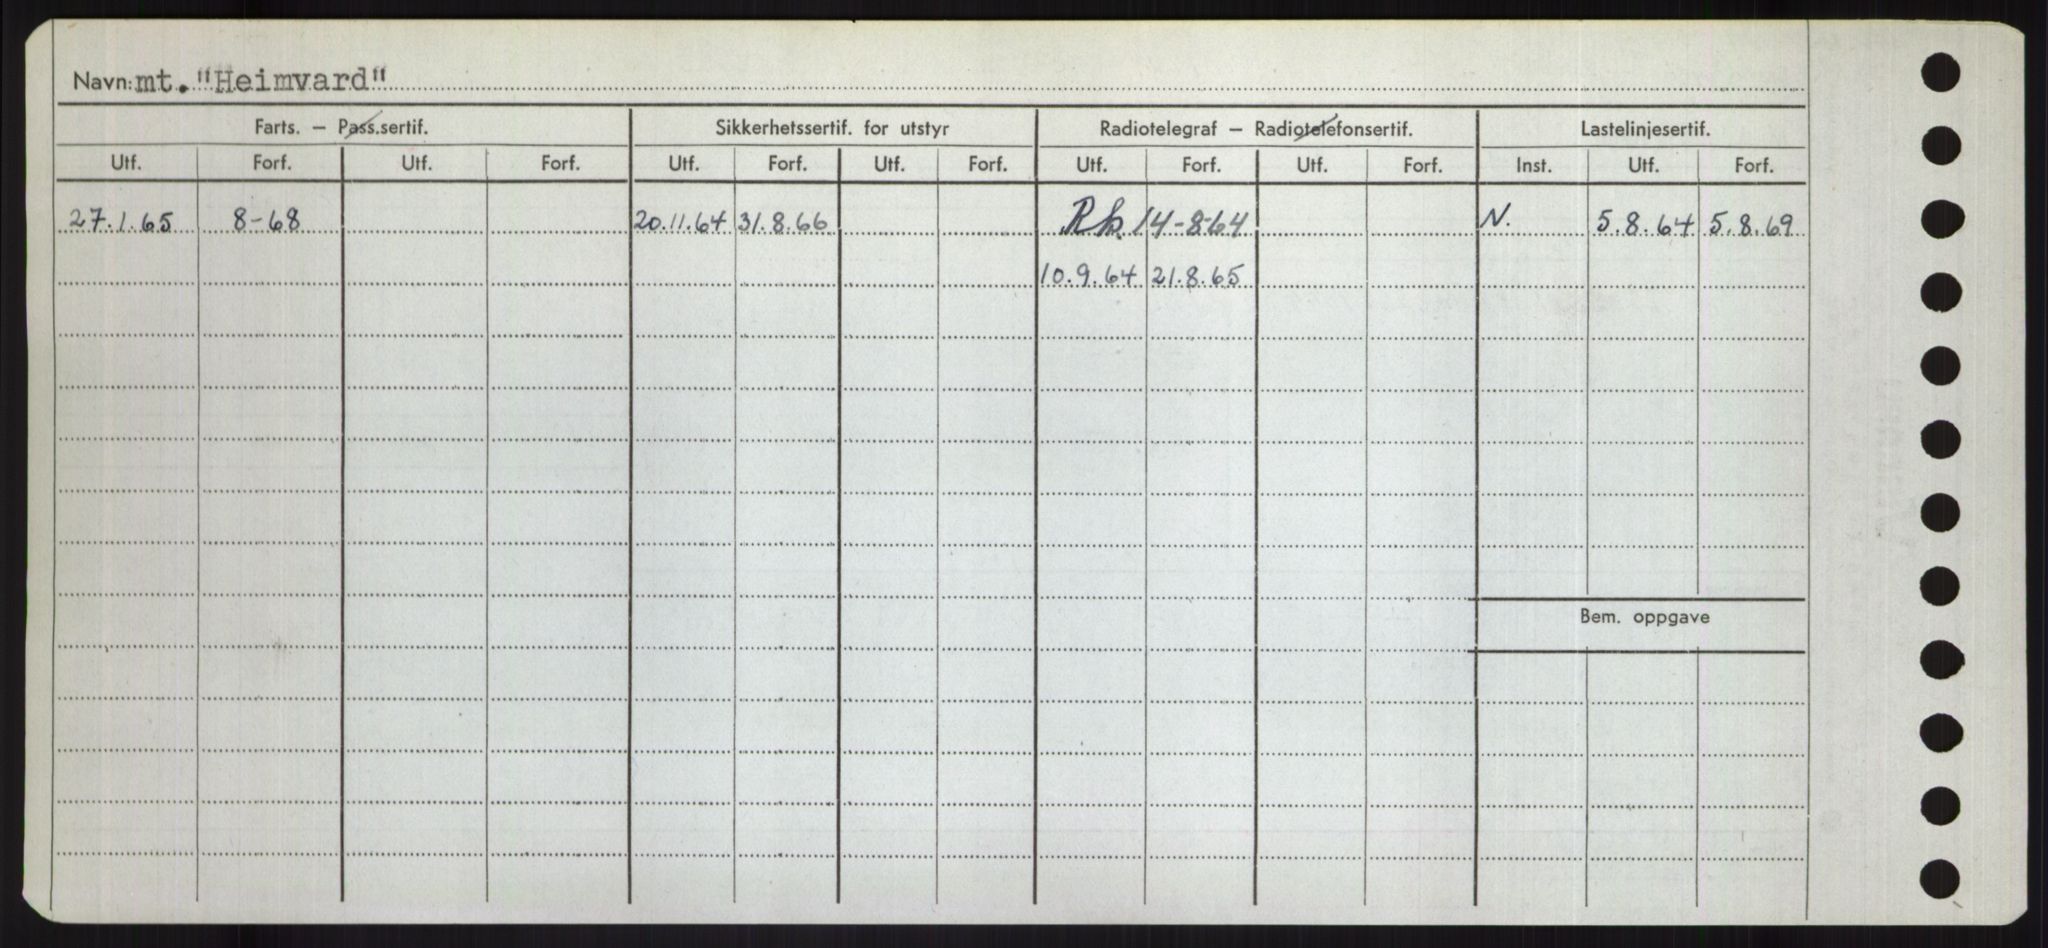 Navn: mt. "Heimvard"
Farts. – Pass.sertif. Sikkerhetssertif. for utstyr Radiotelegraf – Radiotelefonsertif. Lastelinjesertif.
Utf. Forf. Utf. Forf. Utf. Forf. Utf. Forf. Utf. Forf. Utf. Forf. Inst. Utf. Forf.
27.1.65 8-68 20.11.64 31.8.66 14-8-64 N. 5.8.64 5.8.69
10.9.64 21.8.65
Bem. oppgave